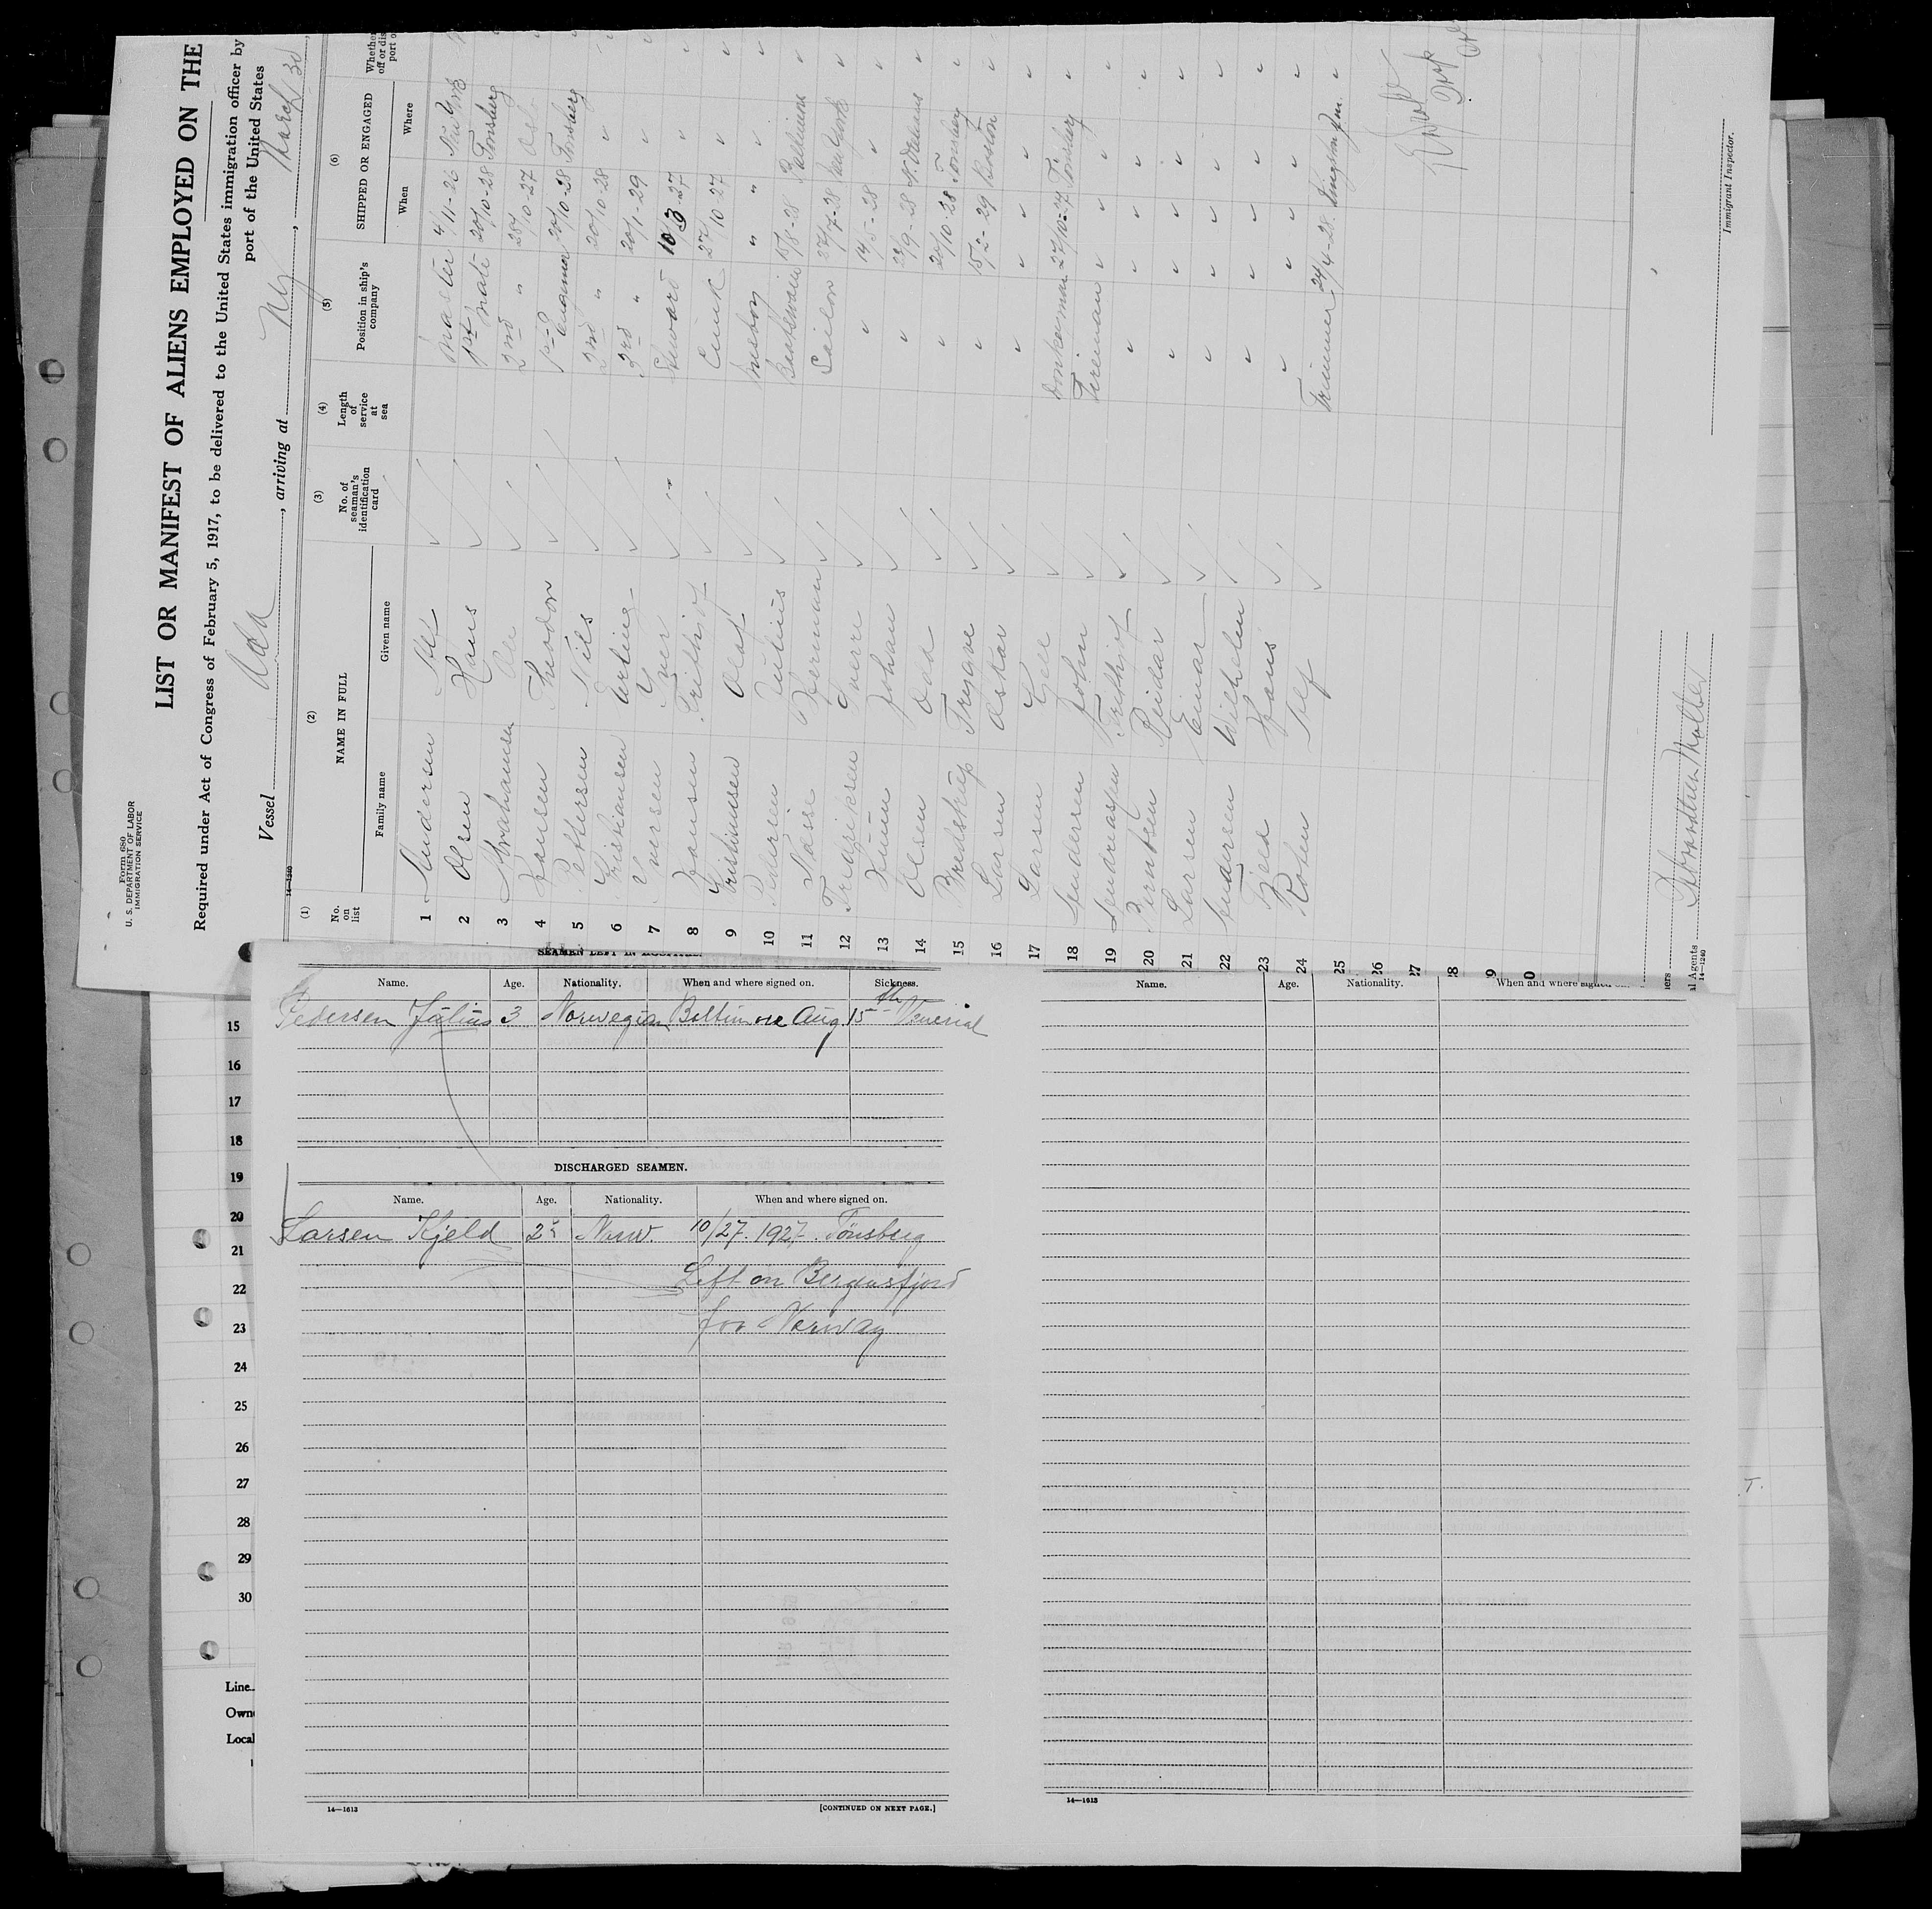 Form 680
U. S. DEPARTMENT OF LABOR
IMMIGRATION SERVICE
LIST OR MANIFEST OF ALIENS EMPLOYED ON THE
Required under Act of Congress of February 5, 1917, to be delivered to the United States immigration officer by
port of the United States
Vessel , arriving at N Y , March 30
14—1240
(1) (2) (3) (4) (5) (6)
No. on list
NAME IN FULL
Family name Given name
No. of seaman's identification card
Length of service at sea
Position in ship's company
SHIPPED OR ENGAGED
When Where
Whether
off or dis
port o
1 Andersen Master 4/11-26 New York
2 Olsen Hans 1st Mate 20/10-28 Tonsberg
3 Abrahamsen Ole 2nd " 28/10-27 Oslo
4 Hansen Theodor 1st Enginer 20/10-28 Tonsberg
5 Pettersen Nils 2nd " 20/10-28 ✓
6 Kristiansen Erling 3rd " 20/1-29 ✓
7 Iversen Iver Steward 10/3-27 ✓
8 Hansen Frithiof 27/10-27 ✓
9 Kristiansen Olaf " " ✓
10 Pedersen Julius 15/8-28
11 Nasse Herman Sailor 27/7-28 New York
12 Fredriksen Sverre ✓ 14/5-28 ✓
13 Johan ✓ 28/9-28 N. Orleans
14 Olsen Odd ✓ 20/10-28 Tonsberg
15 Bredstrup Trygve ✓ 15/2-29 Boston
16 Larsen Oskar ✓ ✓ ✓
17 Larsen Donkeyman 27/10-27 Tonsberg
18 Andersen John Fireman ✓ ✓
19 Andreasen Frithjof ✓ ✓ ✓
20 Berntsen Reidar ✓ ✓ ✓
21 Larsen Einar ✓ ✓ ✓
22 Andersen Wilhelm ✓ ✓ ✓
23 Hans ✓ ✓ ✓
24 Trimmer 24/4-28
25
26
27
28
9
0
Immigrant Inspector.
ners
al Agents
14—1240
SEAMEN LEFT IN HOSPITAL
Name. Age. Nationality. When and where signed on. Sickness.
Pedersen Julius 3 Norwegian Baltimore Aug. 15th Venerial
DISCHARGED SEAMEN.
Name. Age. Nationality. When and where signed on.
Larsen Kjeld Norw. 10/27. 1927. Tönsberg
Left on Bergensfjord
for Norway
14—1613 [CONTINUED ON NEXT PAGE.]
Name. Age. Nationality. When and where signed on.
14—1613
15
16
17
18
19
20
21
22
23
24
25
26
27
28
29
30
Line
Owne
Local
T.